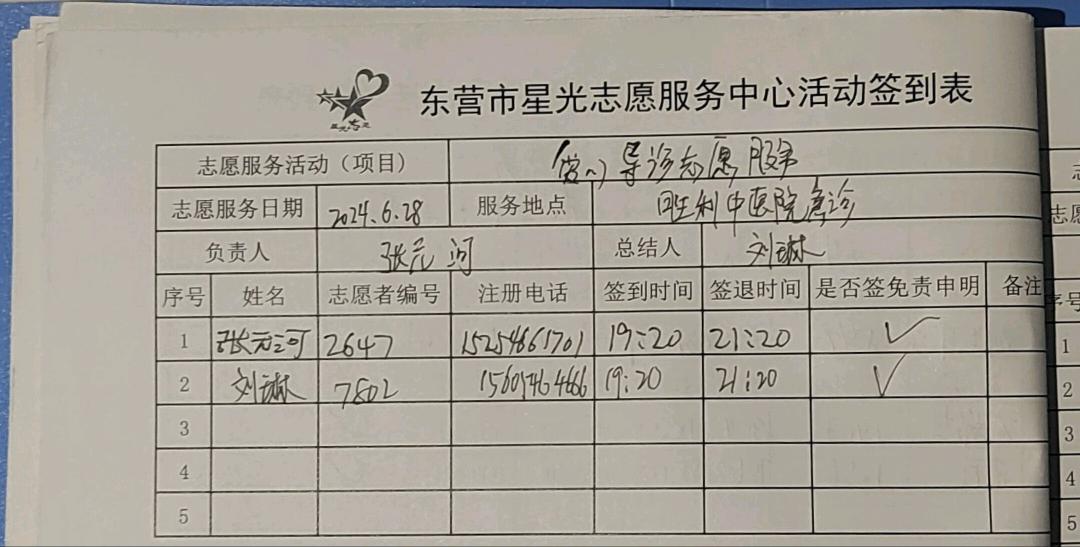 东营市星光志愿服务中心活动签到表
志愿服务活动（项目） 导诊志愿服务
志愿服务日期 2024.6.28 服务地点 胜利中医院急诊
负责人 张元河 总结人 刘琳
序号 姓名 志愿者编号 注册电话 签到时间 签退时间 是否签免责申明 备注
1 张元河 2647 15254661701 19:20 21:20 ✓
2 刘琳 7802 19:20 21:20 ✓
3
4
5